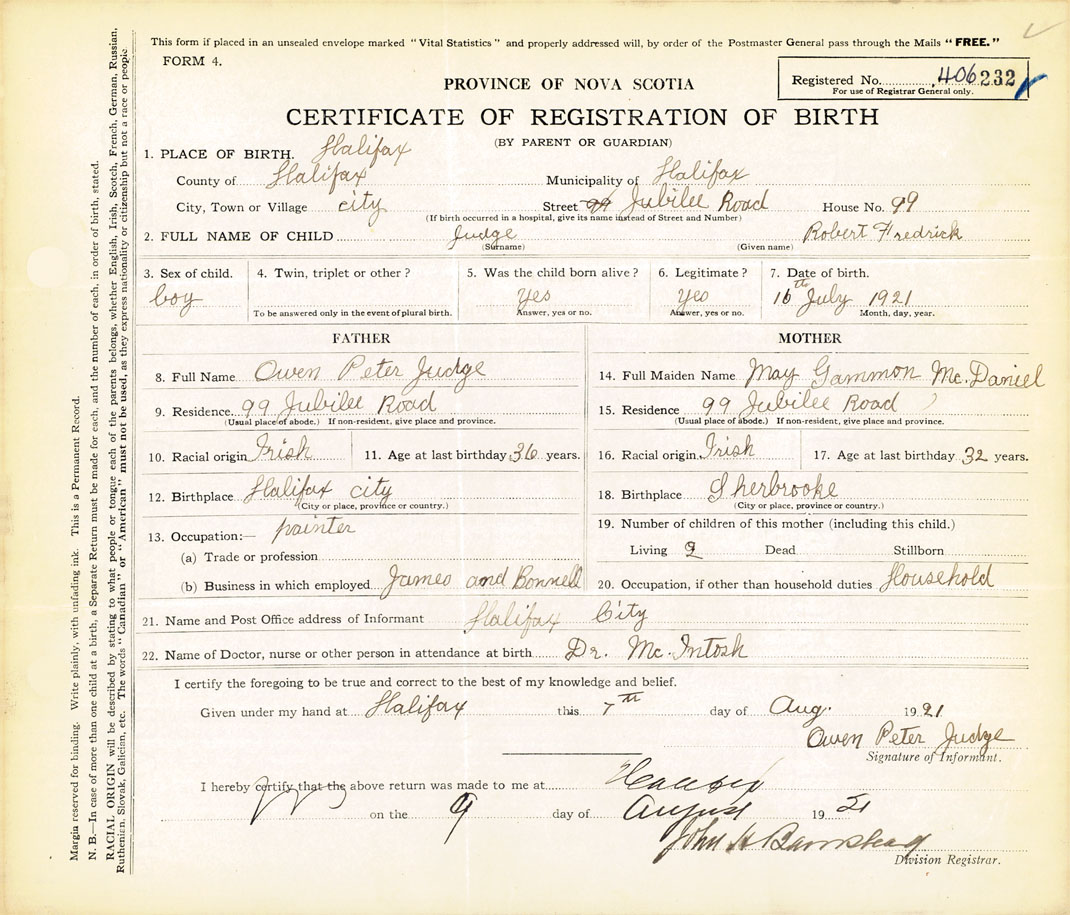 This form if placed in an unsealed envelope marked "Vital Statistics" and properly addressed will, by order of the Postmaster General pass through the Mails "FREE."
FORM 4.
PROVINCE OF NOVA SCOTIA
Registered No. 406232
For use of Registrar General only.
CERTIFICATE OF REGISTRATION OF BIRTH
(BY PARENT OR GUARDIAN)
1. PLACE OF BIRTH. Halifax
County of Halifax Municipality of Halifax
City, Town or Village city Street Jubilee Road House No. 99
(If birth occurred in a hospital, give its name instead of Street and Number)
2. FULL NAME OF CHILD Judge Robert Fredrick
(Surname) (Given name)
3. Sex of child. 4. Twin, triplet or other? 5. Was the child born alive? 6. Legitimate? 7. Date of birth.
boy Yes Yes 16th July 1921
To be answered only in the event of plural birth. Answer, yes or no. Answer, yes or no. Month, day, year.
FATHER MOTHER
8. Full Name Owen Peter Judge 14. Full Maiden Name May Gammon Mc.Daniel
9. Residence 99 Jubilee Road 15. Residence 99 Jubilee Road
(Usual place of abode.) If non-resident, give place and province. (Usual place of abode.) If non-resident, give place and province.
10. Racial origin Irish 11. Age at last birthday 36 years. 16. Racial origin Irish 17. Age at last birthday 32 years.
12. Birthplace Halifax city 18. Birthplace Sherbrooke
(City or place, province or country.) (City or place, province or country.)
13. Occupation:— painter 19. Number of children of this mother (including this child.)
(a) Trade or profession Living 9 Dead Stillborn
(b) Business in which employed James and Bonnell 20. Occupation, if other than household duties Household
21. Name and Post Office address of Informant Halifax City
22. Name of Doctor, nurse or other person in attendance at birth Dr. Mc.Intosh
I certify the foregoing to be true and correct to the best of my knowledge and belief.
Given under my hand at Halifax this 7th day of Aug. 1921
Owen Peter Judge
Signature of Informant.
I hereby certify that the above return was made to me at Halifax
on the 9 day of August 1921
John H Barnstead
Division Registrar.
Margin reserved for binding. Write plainly, with unfading ink. This is a Permanent Record.
N. B.—In case of more than one child at a birth, a Separate Return must be made for each, and the number of each, in order of birth, stated.
RACIAL ORIGIN will be described by stating to what people or tongue each of the parents belongs, whether English, Irish, Scotch, French, German, Russian,
Ruthenian, Slovak, Galician, etc. The words "Canadian" or "American" must not be used, as they express nationality or citizenship but not a race or people.